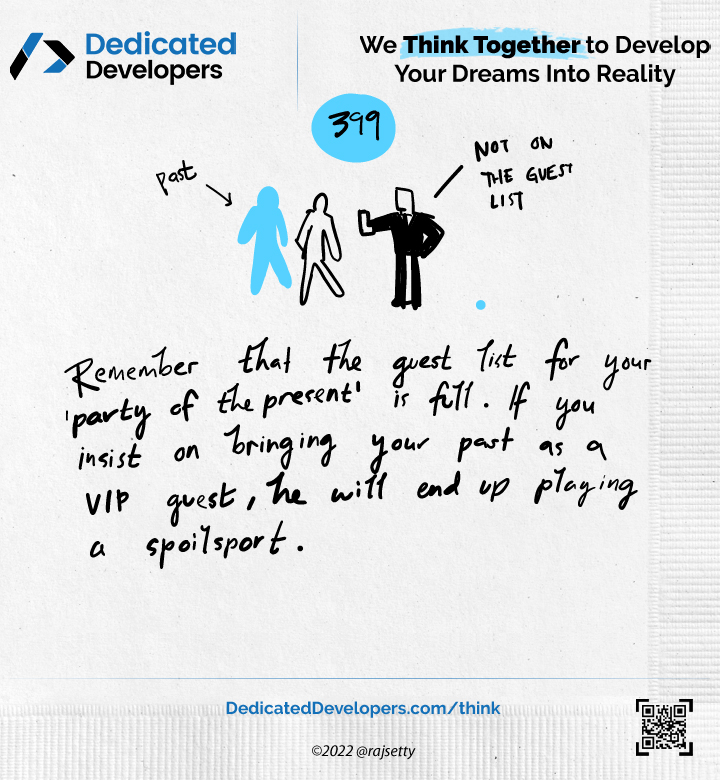 Dedicated
Developers
We Think Together to Develop
Your Dreams Into Reality
399
past
NOT ON
THE GUEST
LIST
Remember that the guest list for your
'party of the present' is full. If you
insist on bringing your past as a
VIP guest, he will end up playing
a spoilsport.
DedicatedDevelopers.com/think
©2022 @rajsetty